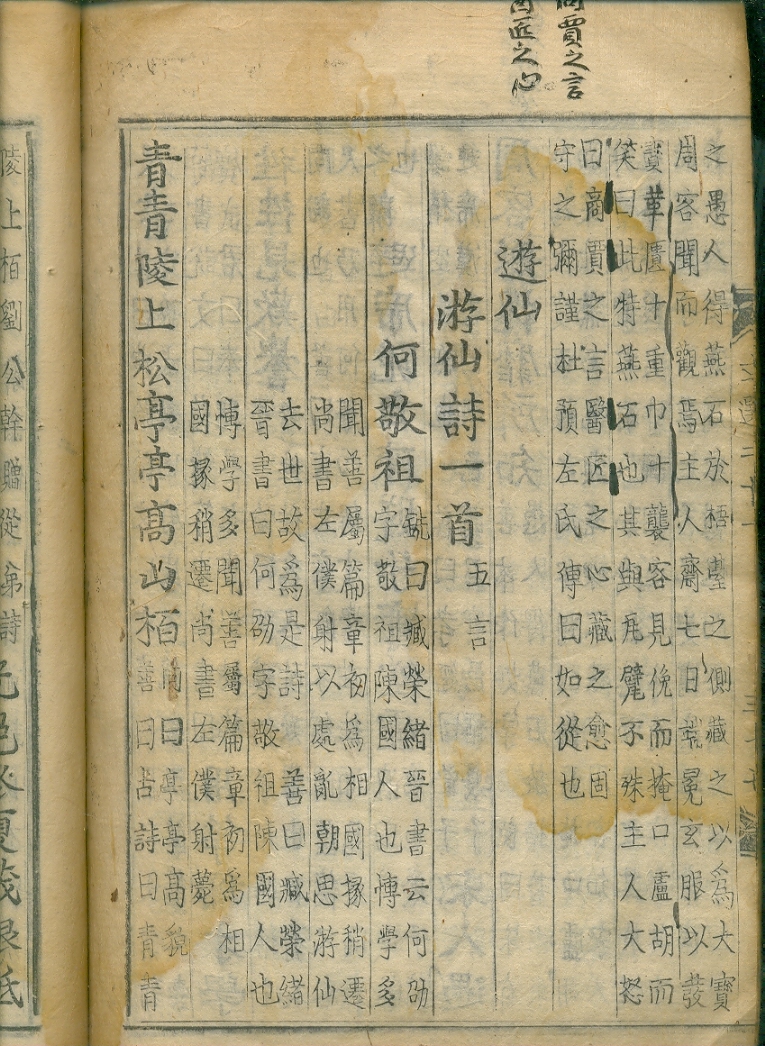 商賈之言
醫匠之心
之愚人得燕石於梧臺之側藏之以爲大寶
周客聞而觀焉主人齋七日端冕玄服以發
寶華匱十重巾十襲客見俛而掩口盧胡而
笑曰此特燕石也其與瓦甓不殊主人大怒
曰商賈之言醫匠之心藏之愈固
守之彌謹杜預左氏傳曰如從也
遊仙
游仙詩一首五言
何敬祖
銑曰臧榮緒晉書云何劭
字敬祖陳國人也愽學多
聞善屬篇章初爲相國掾稍遷
尚書左僕射以處亂朝思游仙
去世故爲是詩 善曰臧榮緒
晉書曰何劭字敬祖陳國人也
愽學多聞善屬篇章初爲相
國掾稍遷尚書左僕射薨
青青陵上松亭亭高山栢
向曰亭亭高貌
善曰古詩曰青青
陵上栢劉公幹贈從弟詩